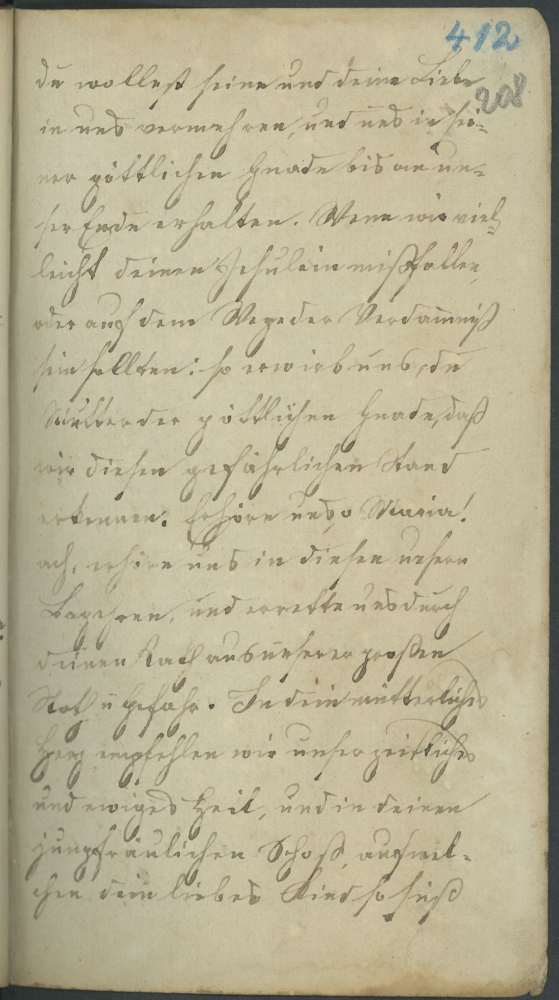 412
208
du wollest seine und deine Liebe
in uns vermehren, und uns in sei-
ner göttlichen Gnade bis an un-
ser Ende erhalten. Wenn wir viel-
leicht deinem Jesulein mißfallen,
oder auf dem Wege der Verdamniß
sein sollten: so erwirb uns, du
Mutter der göttlichen Gnade, daß
wir diesen gefährlichen Stand
erkennen. Erhöre uns, o Maria!
ach, erhöre uns in diesen unsern
Begehren, und errette uns durch
deinen Rath aus unserer großen
Noth u Gefahr. In dein mütterliches
Herz empfehlen wir unser zeitliches
und ewiges Heil, und in deinen
jungfräulichen Schoß, auf wel-
chen dein liebes Kind so süß